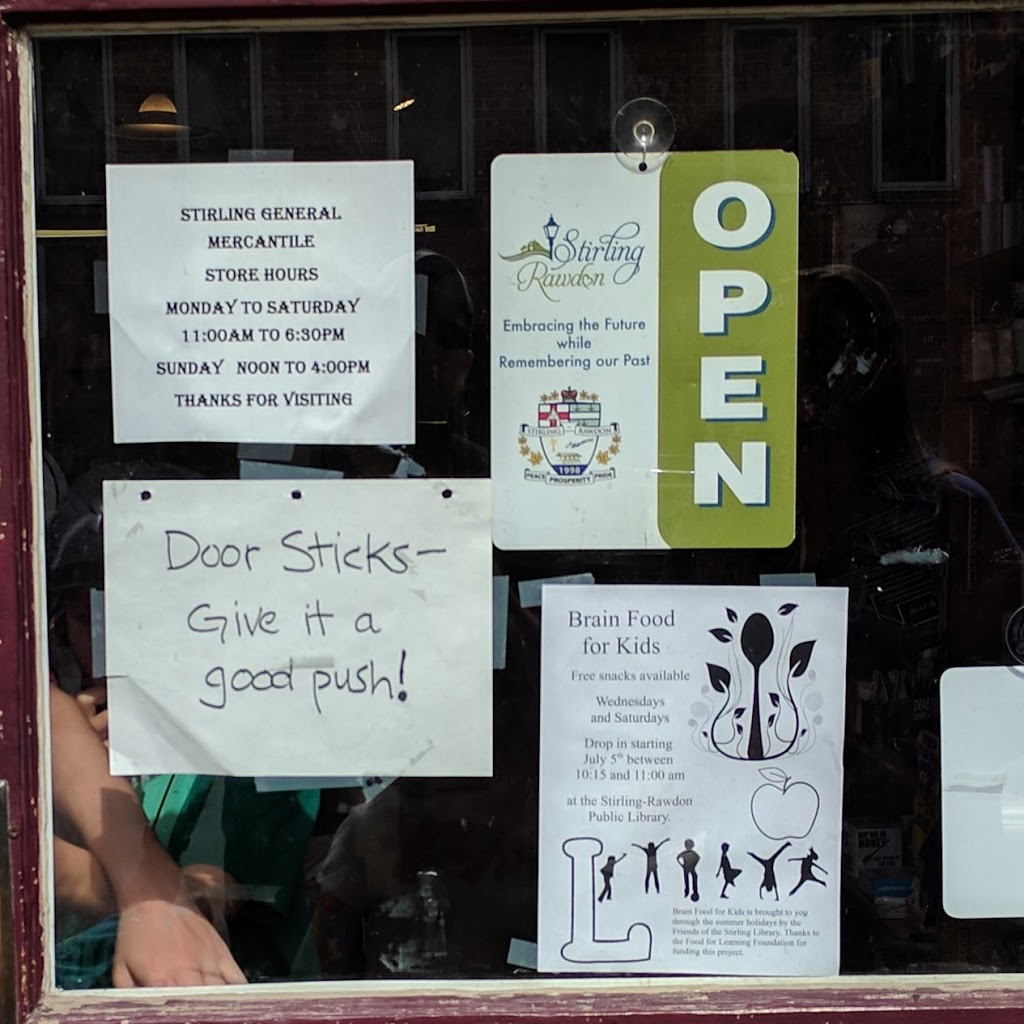 STIRLING GENERAL
MERCANTILE
STORE HOURS
MONDAY TO SATURDAY
11:00AM TO 6:30PM
SUNDAY NOON TO 4:00PM
THANKS FOR VISITING
Door Sticks-
Give it a
good push!
Stirling
Rawdon
Embracing the Future
while
Remembering our Past
STIRLING RAWDON
1998
PEACE PROSPERITY PRIDE
OPEN
Brain Food
for Kids
Free snacks available
Wednesdays
and Saturdays
Drop in starting
July 5th between
10:15 and 11:00 am
at the Stirling-Rawdon
Public Library.
L
Brain Food for Kids is brought to you
through the summer holidays by the
Friends of the Stirling Library. Thanks to
the Food for Learning Foundation for
funding this project.